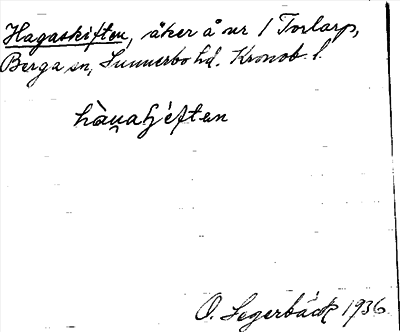 Hagaskiften, åker å nr 1 Torlarp,
Berga sn, Sunnerbo hd. Kronob. l.
hàṷaʃéften
O. Segerbäck 1936